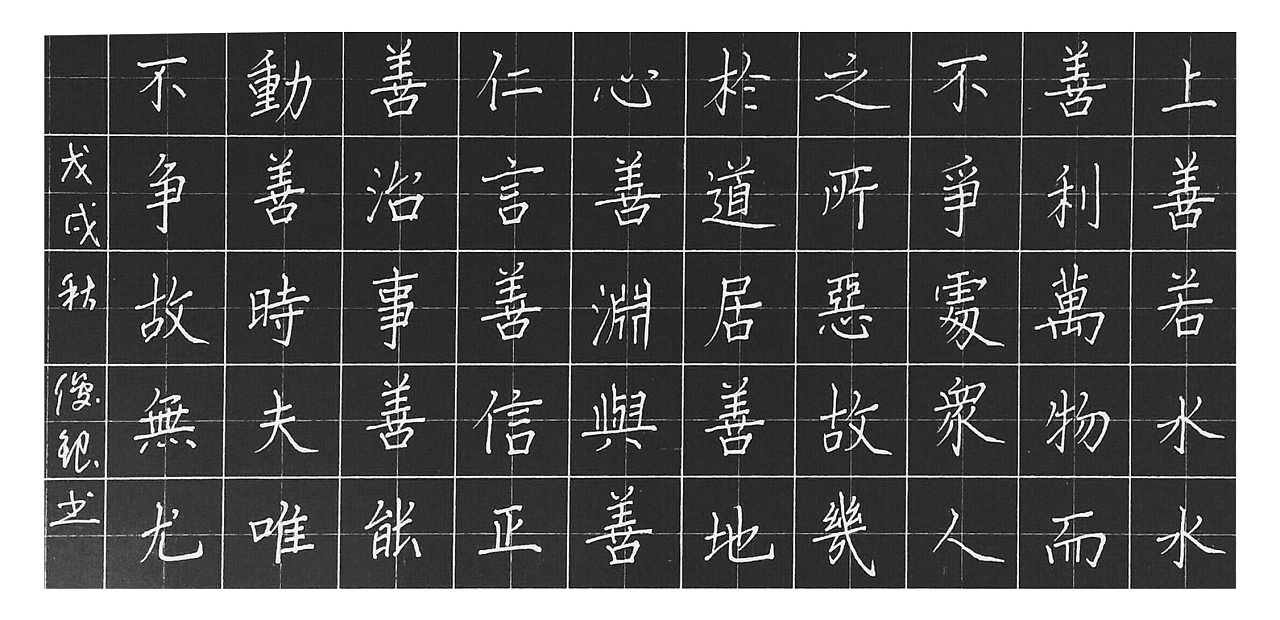 上善若水水
善利萬物而
不爭處衆人
之所惡故幾
於道居善地
心善淵與善
仁言善信正
善治事善能
動善時夫唯
不争故無尤
戊戌秋俊书